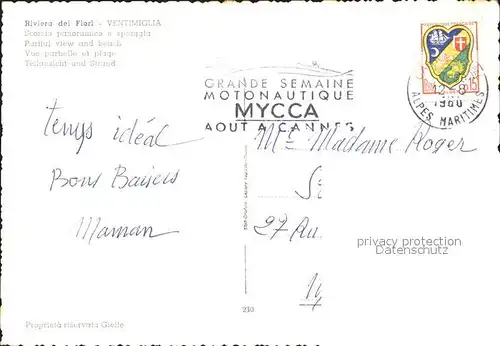 Riviera dei Fiori - VENTIMIGLIA
Scorcio panoramico e spiaggia
Partial view and beach
Vue partielle et plage
Teilansicht und Strand
GRANDE SEMAINE
MOTONAUTIQUE
MYCCA
AOUT A CANNES
12-8
1960
ALPES MARITIMES
0,15
temps idéal
Bons Baisers
Maman
Mr Madame Roger
27 Au
privacy protection
Datenschutz
210
Proprietà riservata Gielle